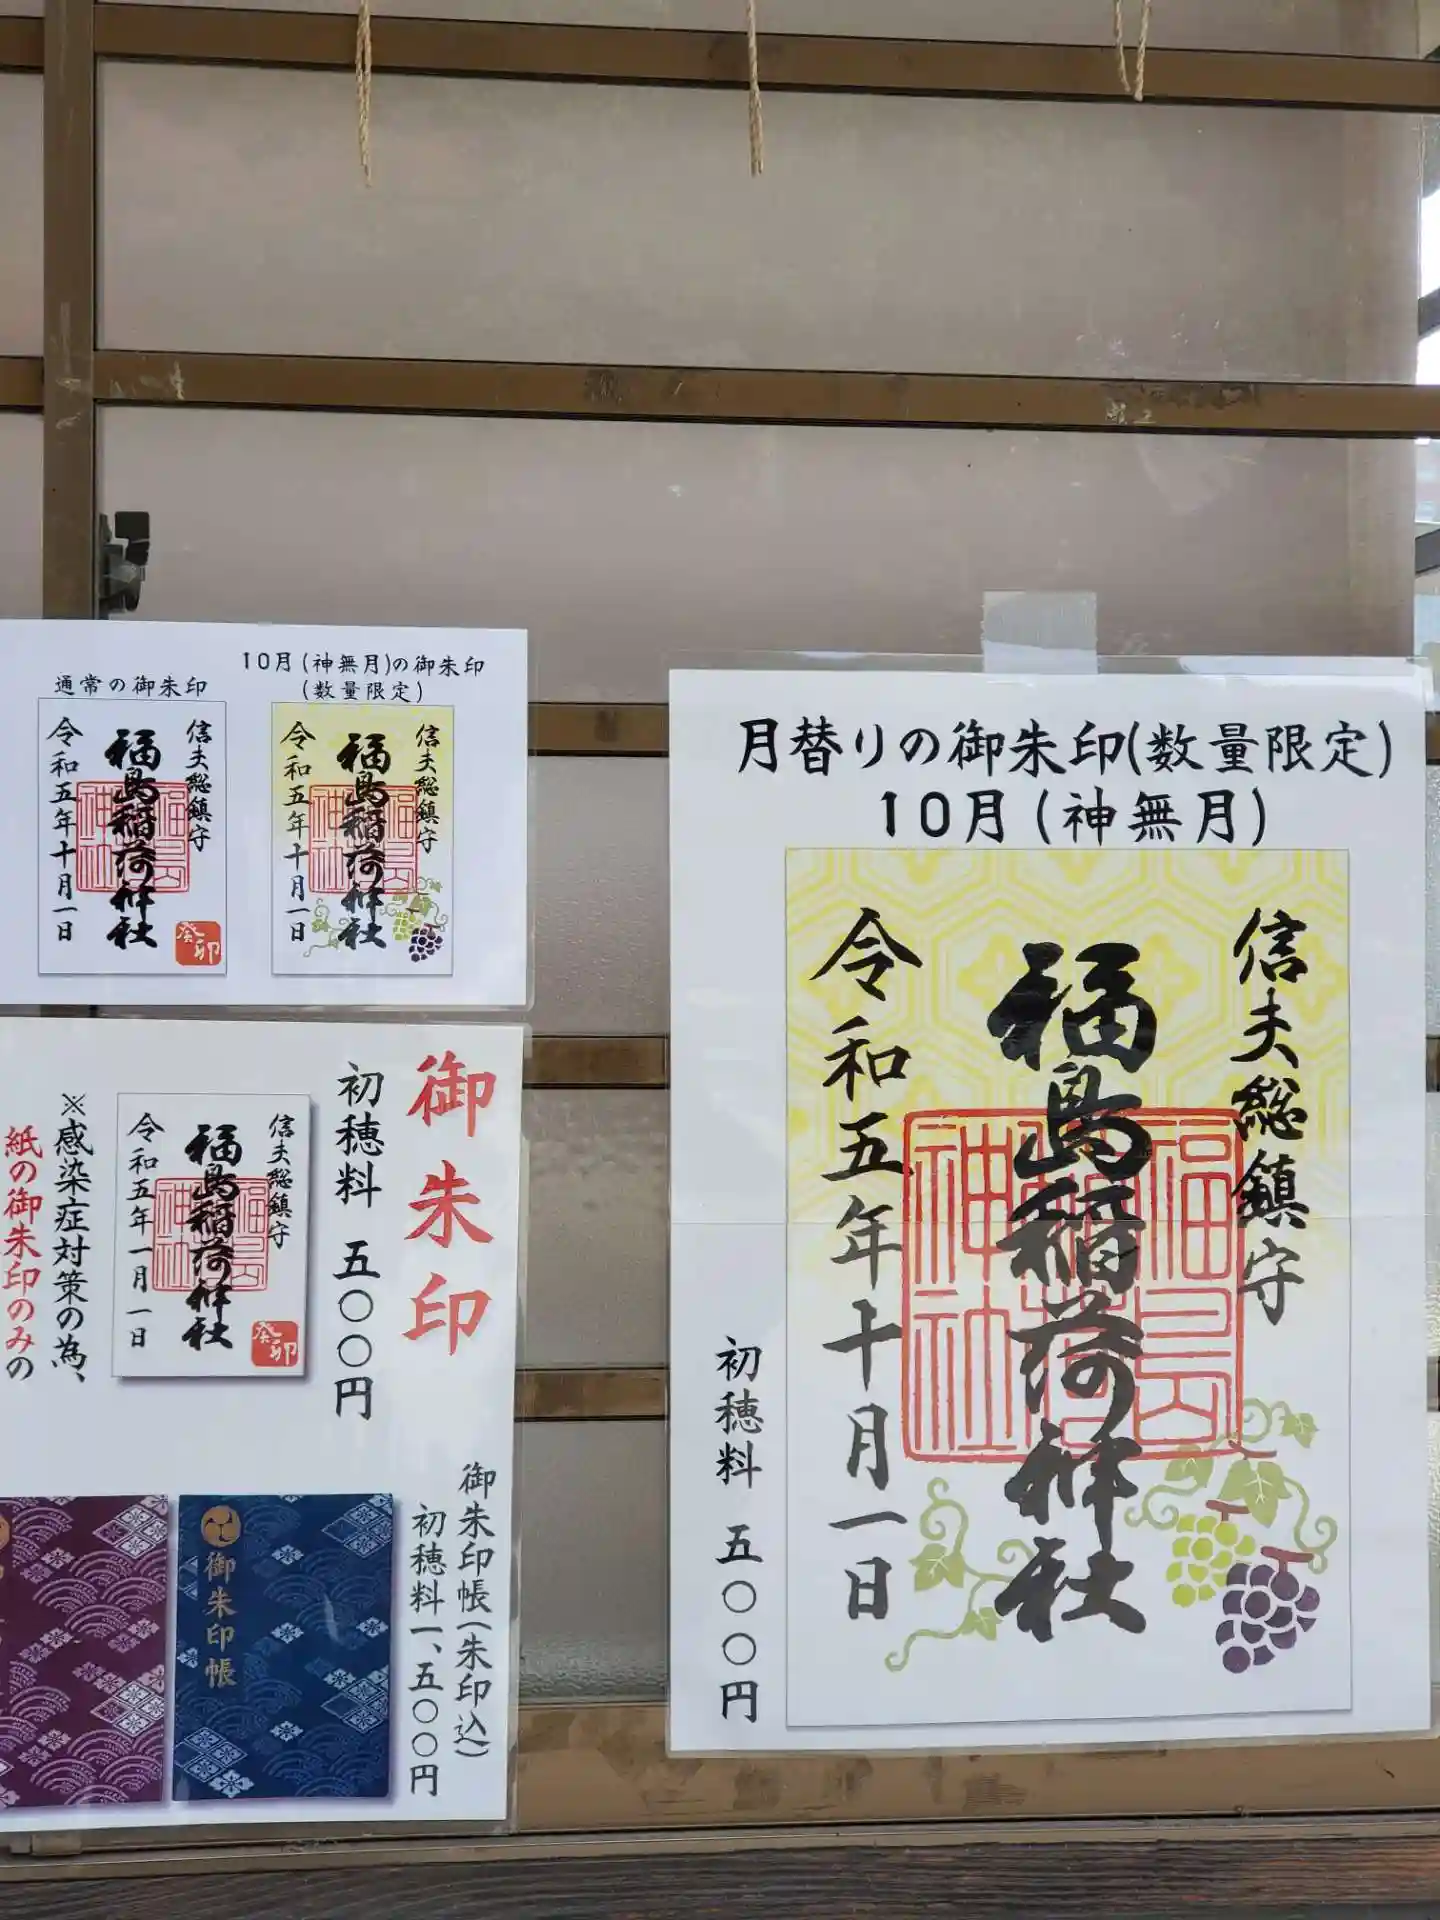 通常の御朱印
信夫総鎮守
福島稲荷神社
令和五年十月一日
癸卯
10月(神無月)の御朱印
(数量限定)
信夫総鎮守
福島稲荷神社
令和五年十月一日
御朱印
初穂料 五〇〇円
信夫総鎮守
福島稲荷神社
令和五年一月一日
癸卯
※感染症対策の為、
紙の御朱印のみの
御朱印帳(朱印込)
初穂料一、五〇〇円
御朱印帳
月替りの御朱印(数量限定)
10月(神無月)
信夫総鎮守
福島稲荷神社
令和五年十月一日
初穂料 五〇〇円